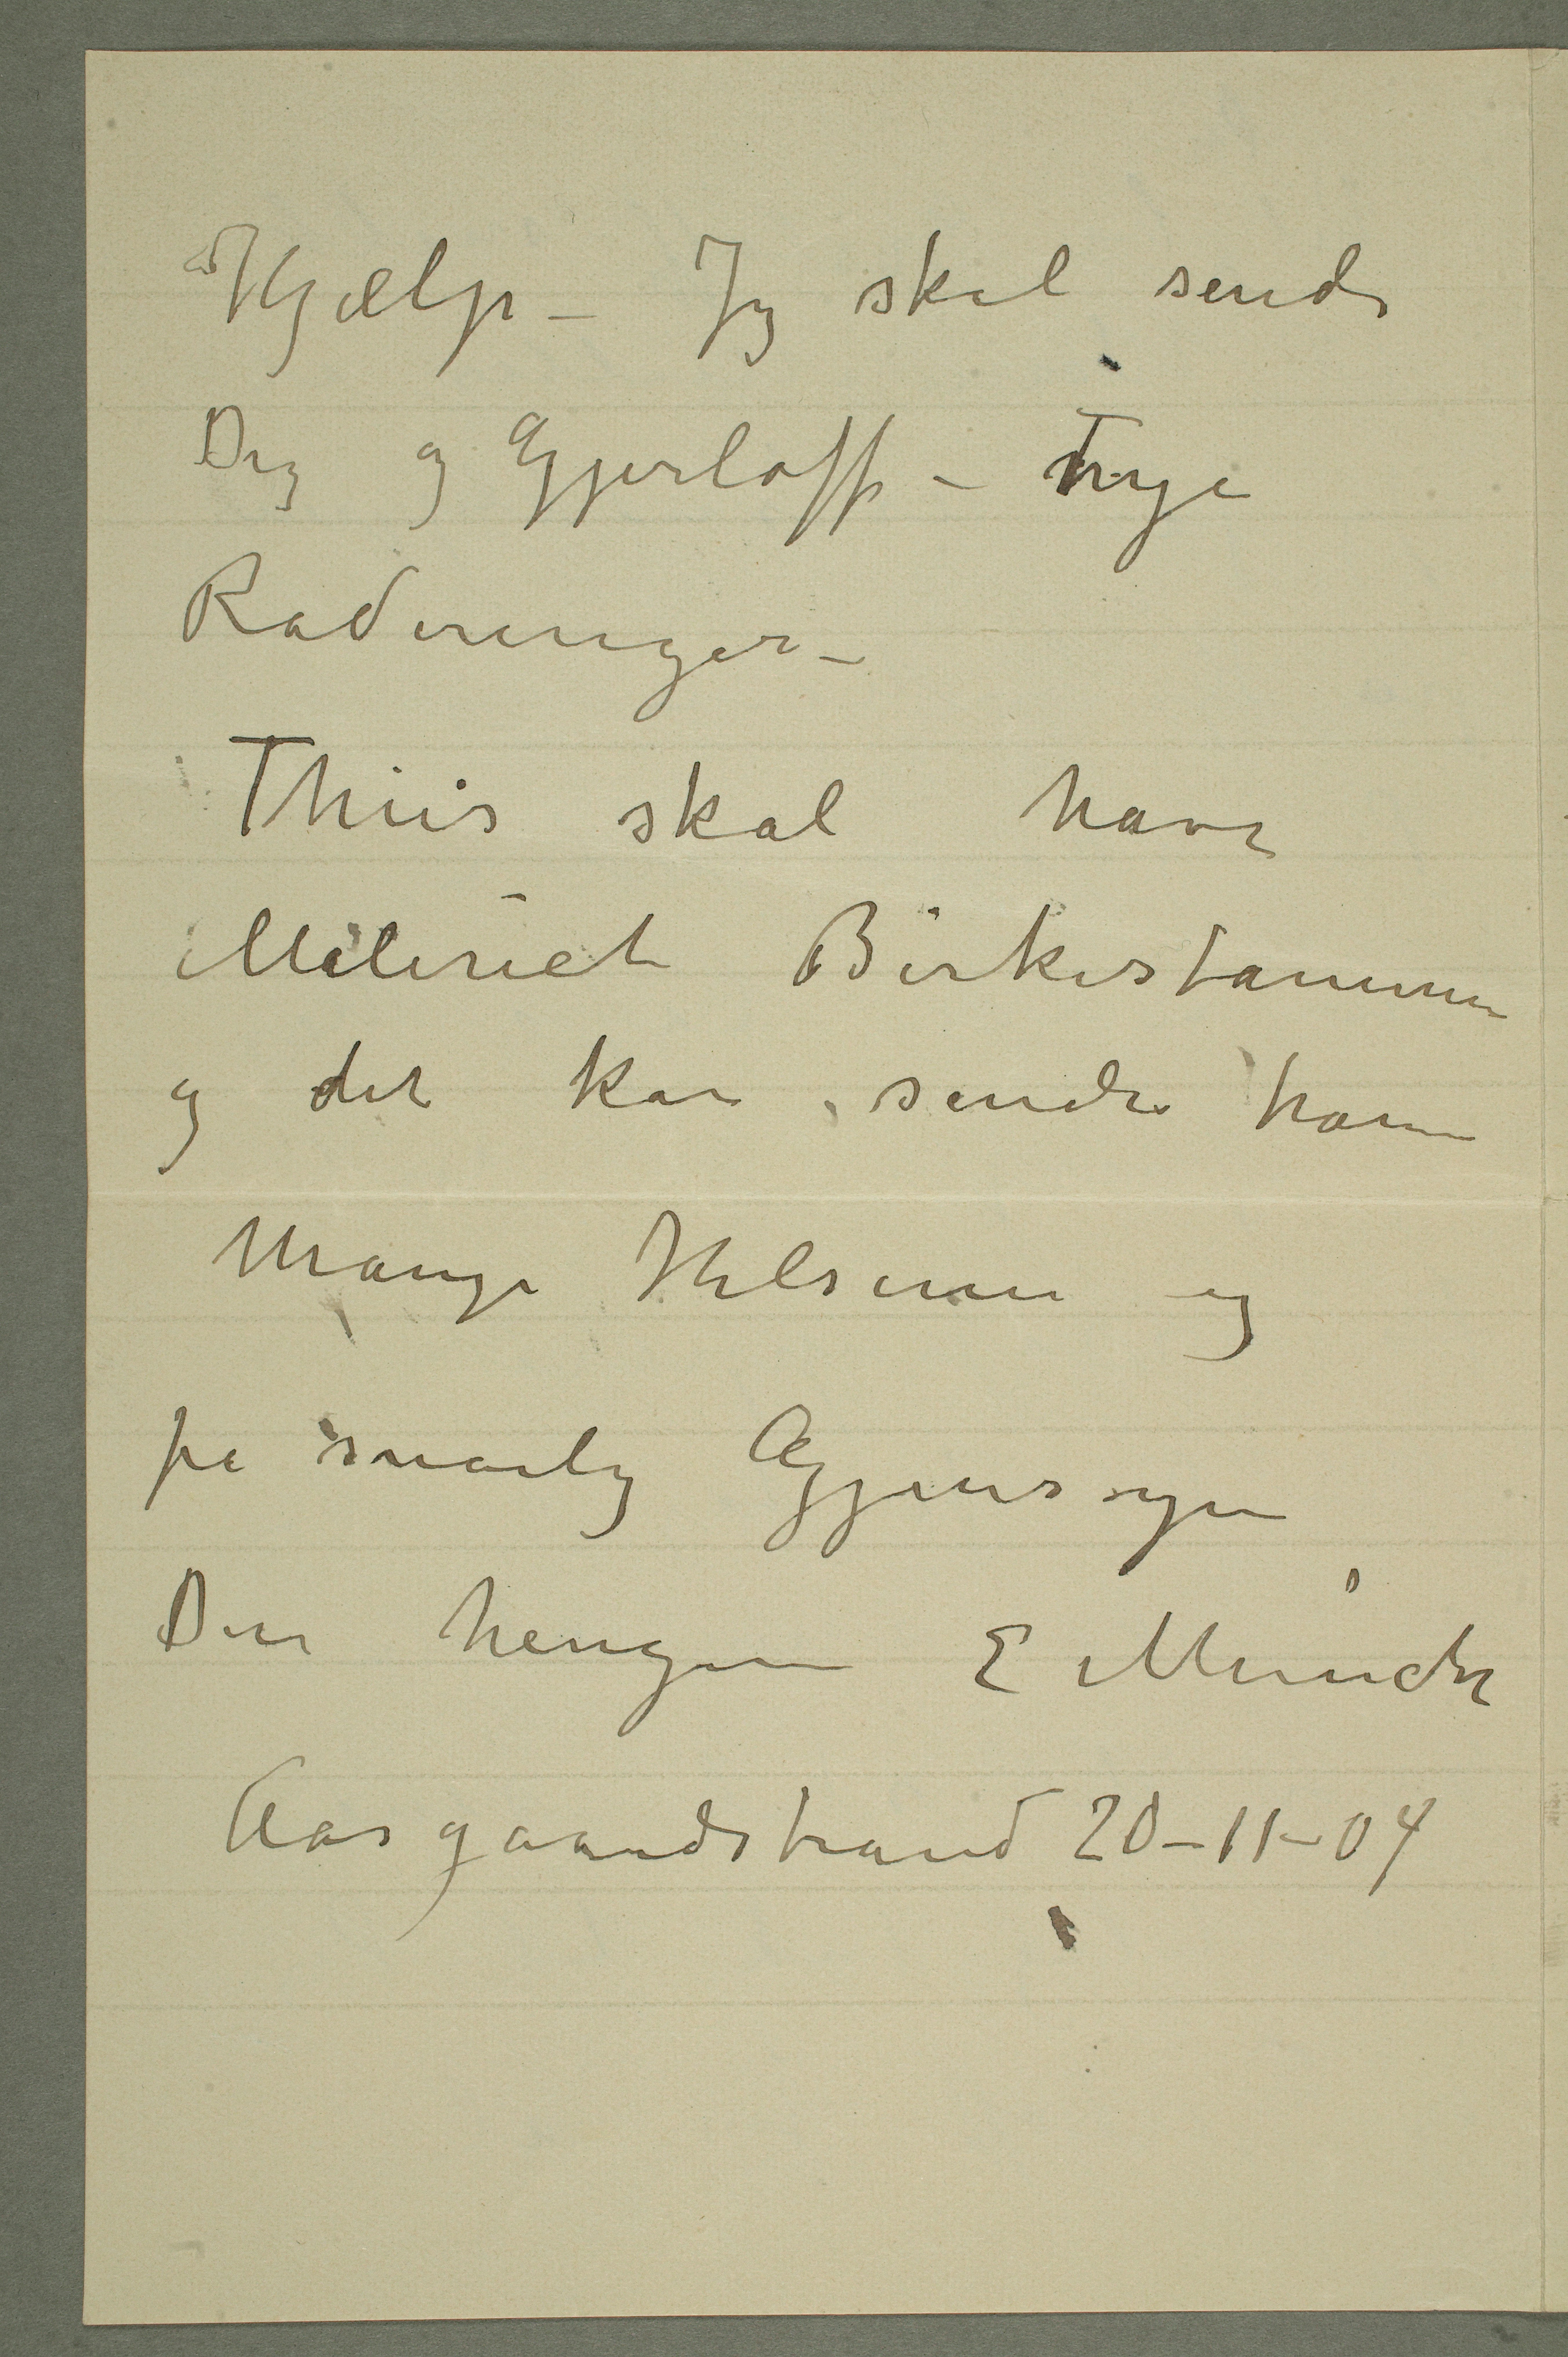 Hjælp – Jeg skal sende
Dig og Gjerløff – nye
Raderinger –
Thiis skal have
Maleriet Birkestammen
og det kan sendes ham
Mange Hilsener og
på snarlig Gjensyn
Din hengivne E Munch
Aasgaardstrand 20–11–04